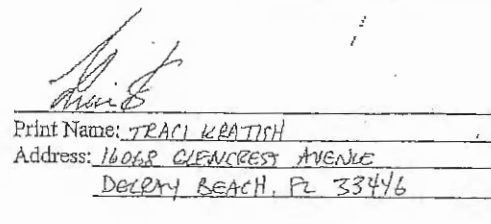 Print Name: TRACI KRATISH
Address: 16068 GLENCREST AVENUE
DELRAY BEACH, FL 33446